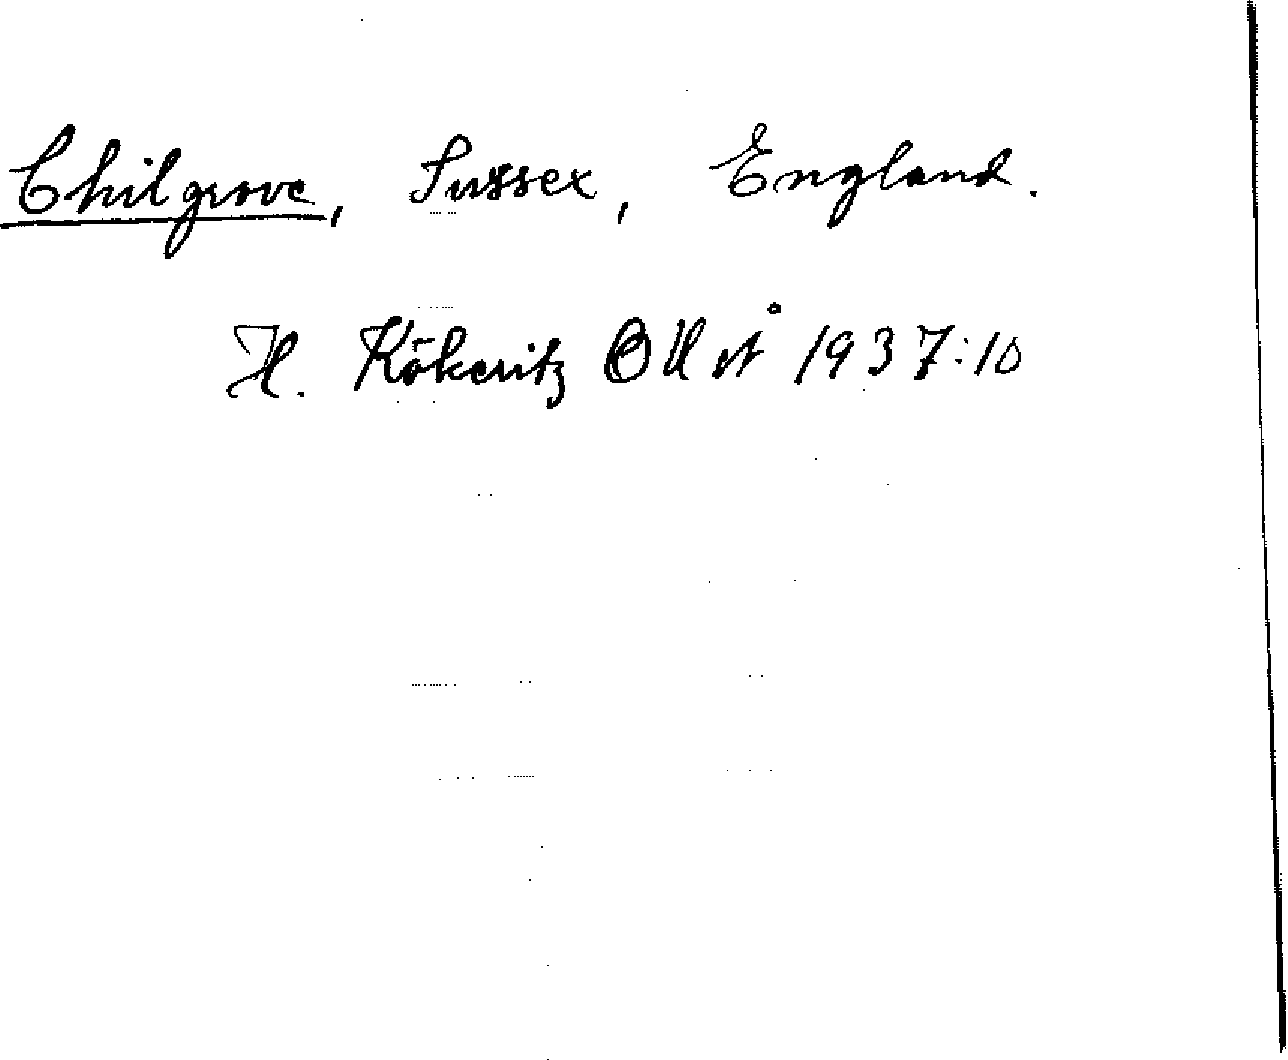 Chilgrove, Sussex, England.
H. Kökeritz OUÅ 1937:10